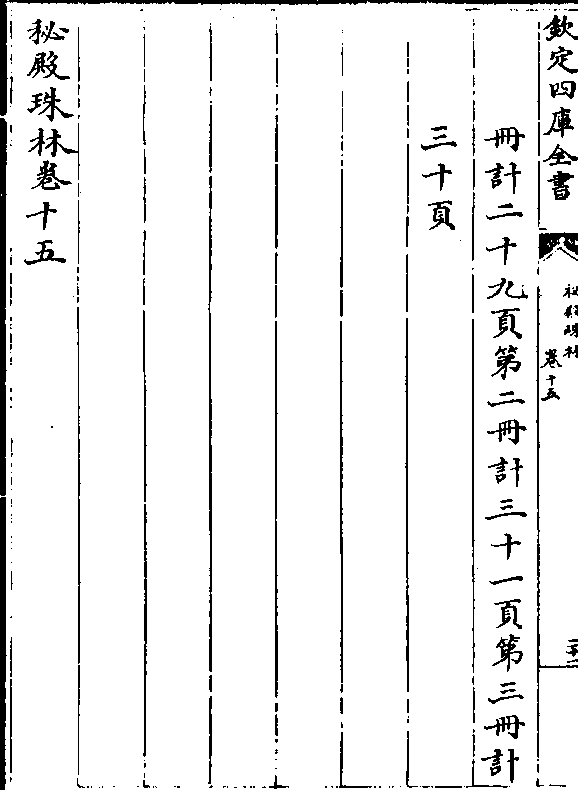 欽定四庫全書
祕殿珠林
卷十五
冊計二十九頁第二冊計三十一頁第三冊計
三十頁
秘殿珠林卷十五